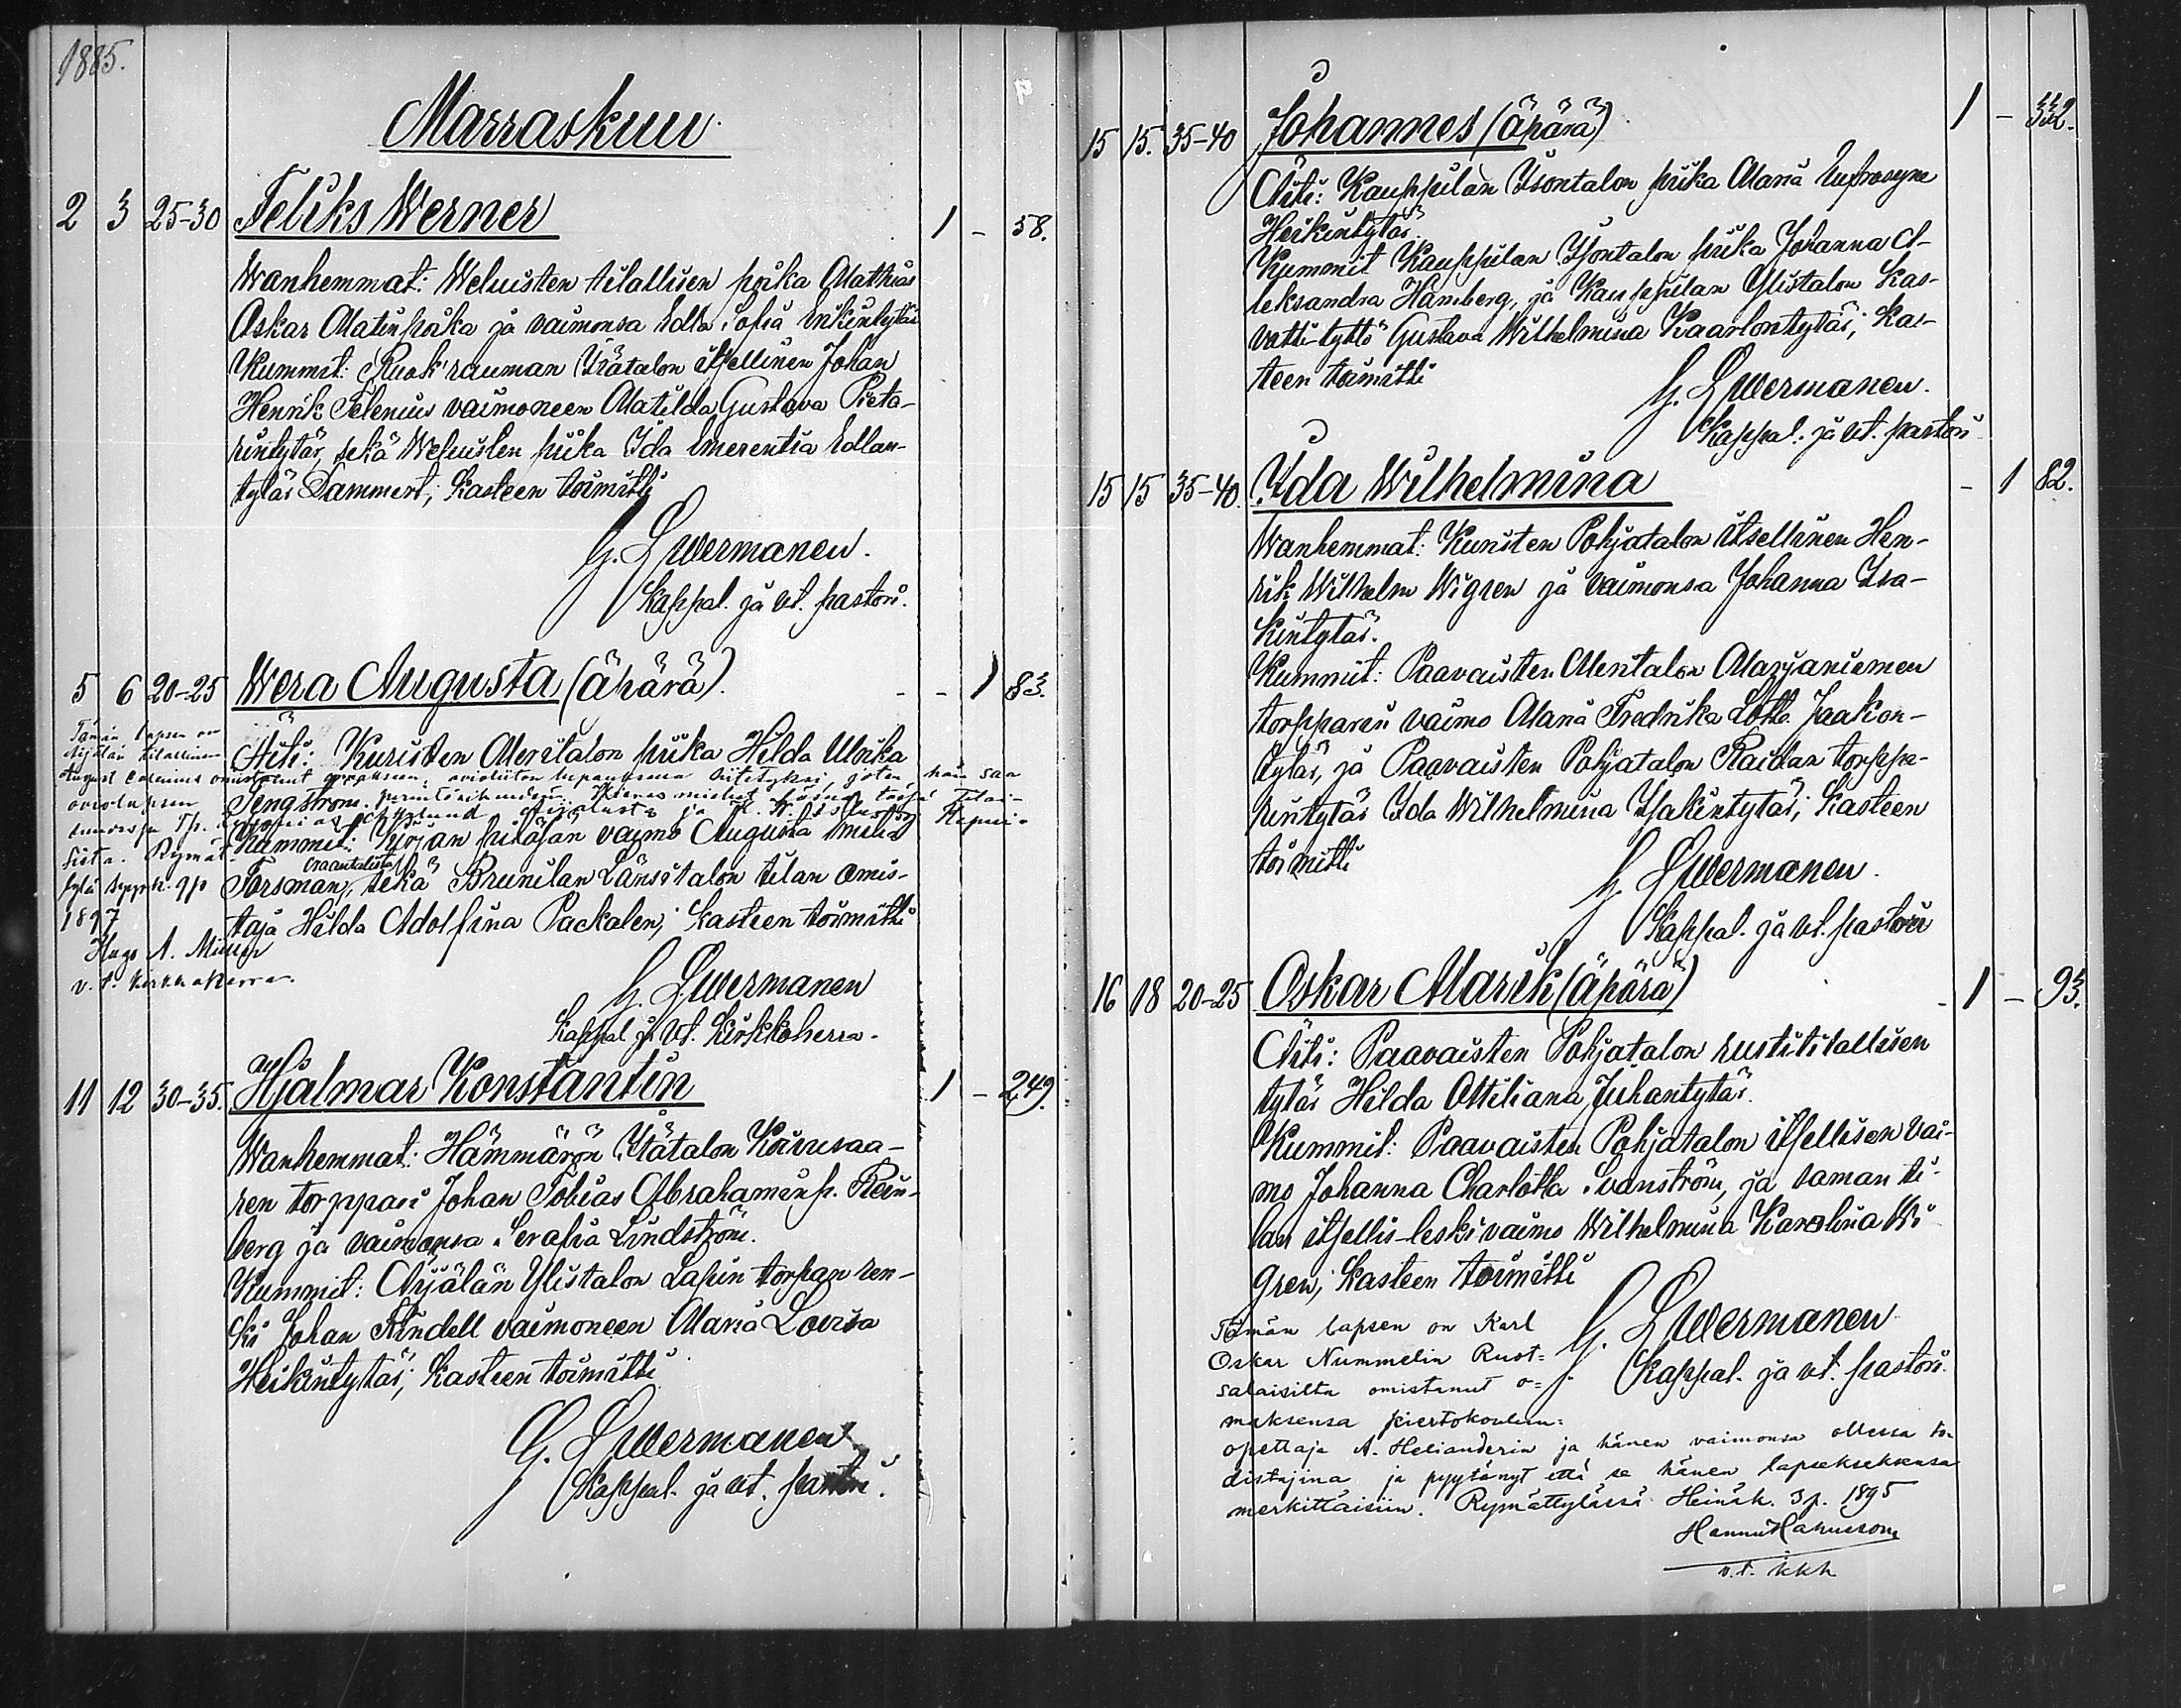 1885.
Marraskuu.
2 3 25-30 Feliks Werner 1 - 58.
Wanhemmat: Weluisten tilallisen poika Mathias
Oskar Matinpoika ja vaimonsa Edla Sofia Erkintytär
Kummit: Ruokrauman Itätalon itsellinen Johan
Henrik Felenius vaimoneen Matilda Gustava Pieta-
rintytär, sekä Weluisten piika Ida Emerentia Edlan-
tytär Dammert; kasteen toimitti
G. Lwermanen.
Kappal. ja vt. pastori.
5 6 20-25 Wera Augusta (äpärä). - - 1 83.
Tämän lapsen on
tilallinen
Äiti: Kuristen Meritalon piika Hilda Ulrika
August omistanut omaksensa, avioliiton lupauksessa siitetyksi, joten hän saa
Tengström.
Kummit: Kirjan pitäjän vaimo Augusta
Forsman, Naantalista, sekä Brunilan Länsitalon tilan omis-
taja Hilda Adolfina Packalen; kasteen toimitti
1897
Hugo A.
v. t. kirkkoherra.
G. Lwermanen
Kappal ja vt. kirkkoherra.
11 12 30-35. Hjalmar Konstantin 1 - 249.
Wanhemmat: Hämmärön Itätalon Koivusaa-
ren torppari Johan Tobias Abrahaminp. Rein-
berg ja vaimonsa Serafia Lindström.
Kummit: Äijälän Ylistalon Lapin torpan ren-
ki Johan Rindell vaimoneen Maria Lovisa
Heikintytär; kasteen toimitti
G. Lwermanen
Kappal. ja vt. pastori.
15 15. 35-40 Johannes (äpärä) 1 - 332.
Äiti: Kauppilan Isontalon piika Maria Eufrosyne
Heikintytär.
Kummit Kauppilan Isontalon piika Johanna A-
leksandra Hamberg, ja Kauppilan Ylistalon kas-
vatti-tyttö Gustava Wilhelmina Kaarlontytär; kas-
teen toimitti
G. Lwermanen.
Kappal. ja vt. pastori
15 15 35-40. Ida Wilhelmina - 1 82.
Wanhemmat: Kuristen Pohjatalon itsellinen Hen-
rik Wilhelm Wigren ja vaimonsa Johanna Isa-
kintytär.
Kummit: Paavaisten Meritalon Marjaniemen
torpparin vaimo Maria Fredrika Lotta Jaakon-
tytär, ja Paavaisten Pohjatalon Raidan torppa-
rintytär Ida Wilhelmina Isakintytär; kasteen
toimitti
G. Lwermanen.
Kappal. ja vt. pastori
16 18 20-25 Oskar Marik (äpärä) - 1 - 93.
Äiti: Paavaisten Pohjatalon rustitilallisen
tytär Hilda Ottiliana Juhantytär.
Kummit: Paavaisten Pohjatalon itsellisen vai-
mo Johanna Charlotta Svanström, ja saman ti-
lan itsellis-leskivaimo Wilhelmina Karolina Wi
gren; kasteen toimitti
G. Lwermanen
Kappal. ja vt. pastori.
Tämän lapsen on Karl
Oskar Nummelin Rust=
salaisilta omistanut o=
maksensa kiertokoulun=
opettaja A. Helianderin ja hänen vaimonsa ollessa to-
distajina ja pyytänyt että se hänen lapseksensa
merkittäisiin. Rymättylässä Heinäk. 3 p. 1895
v. t. kkh